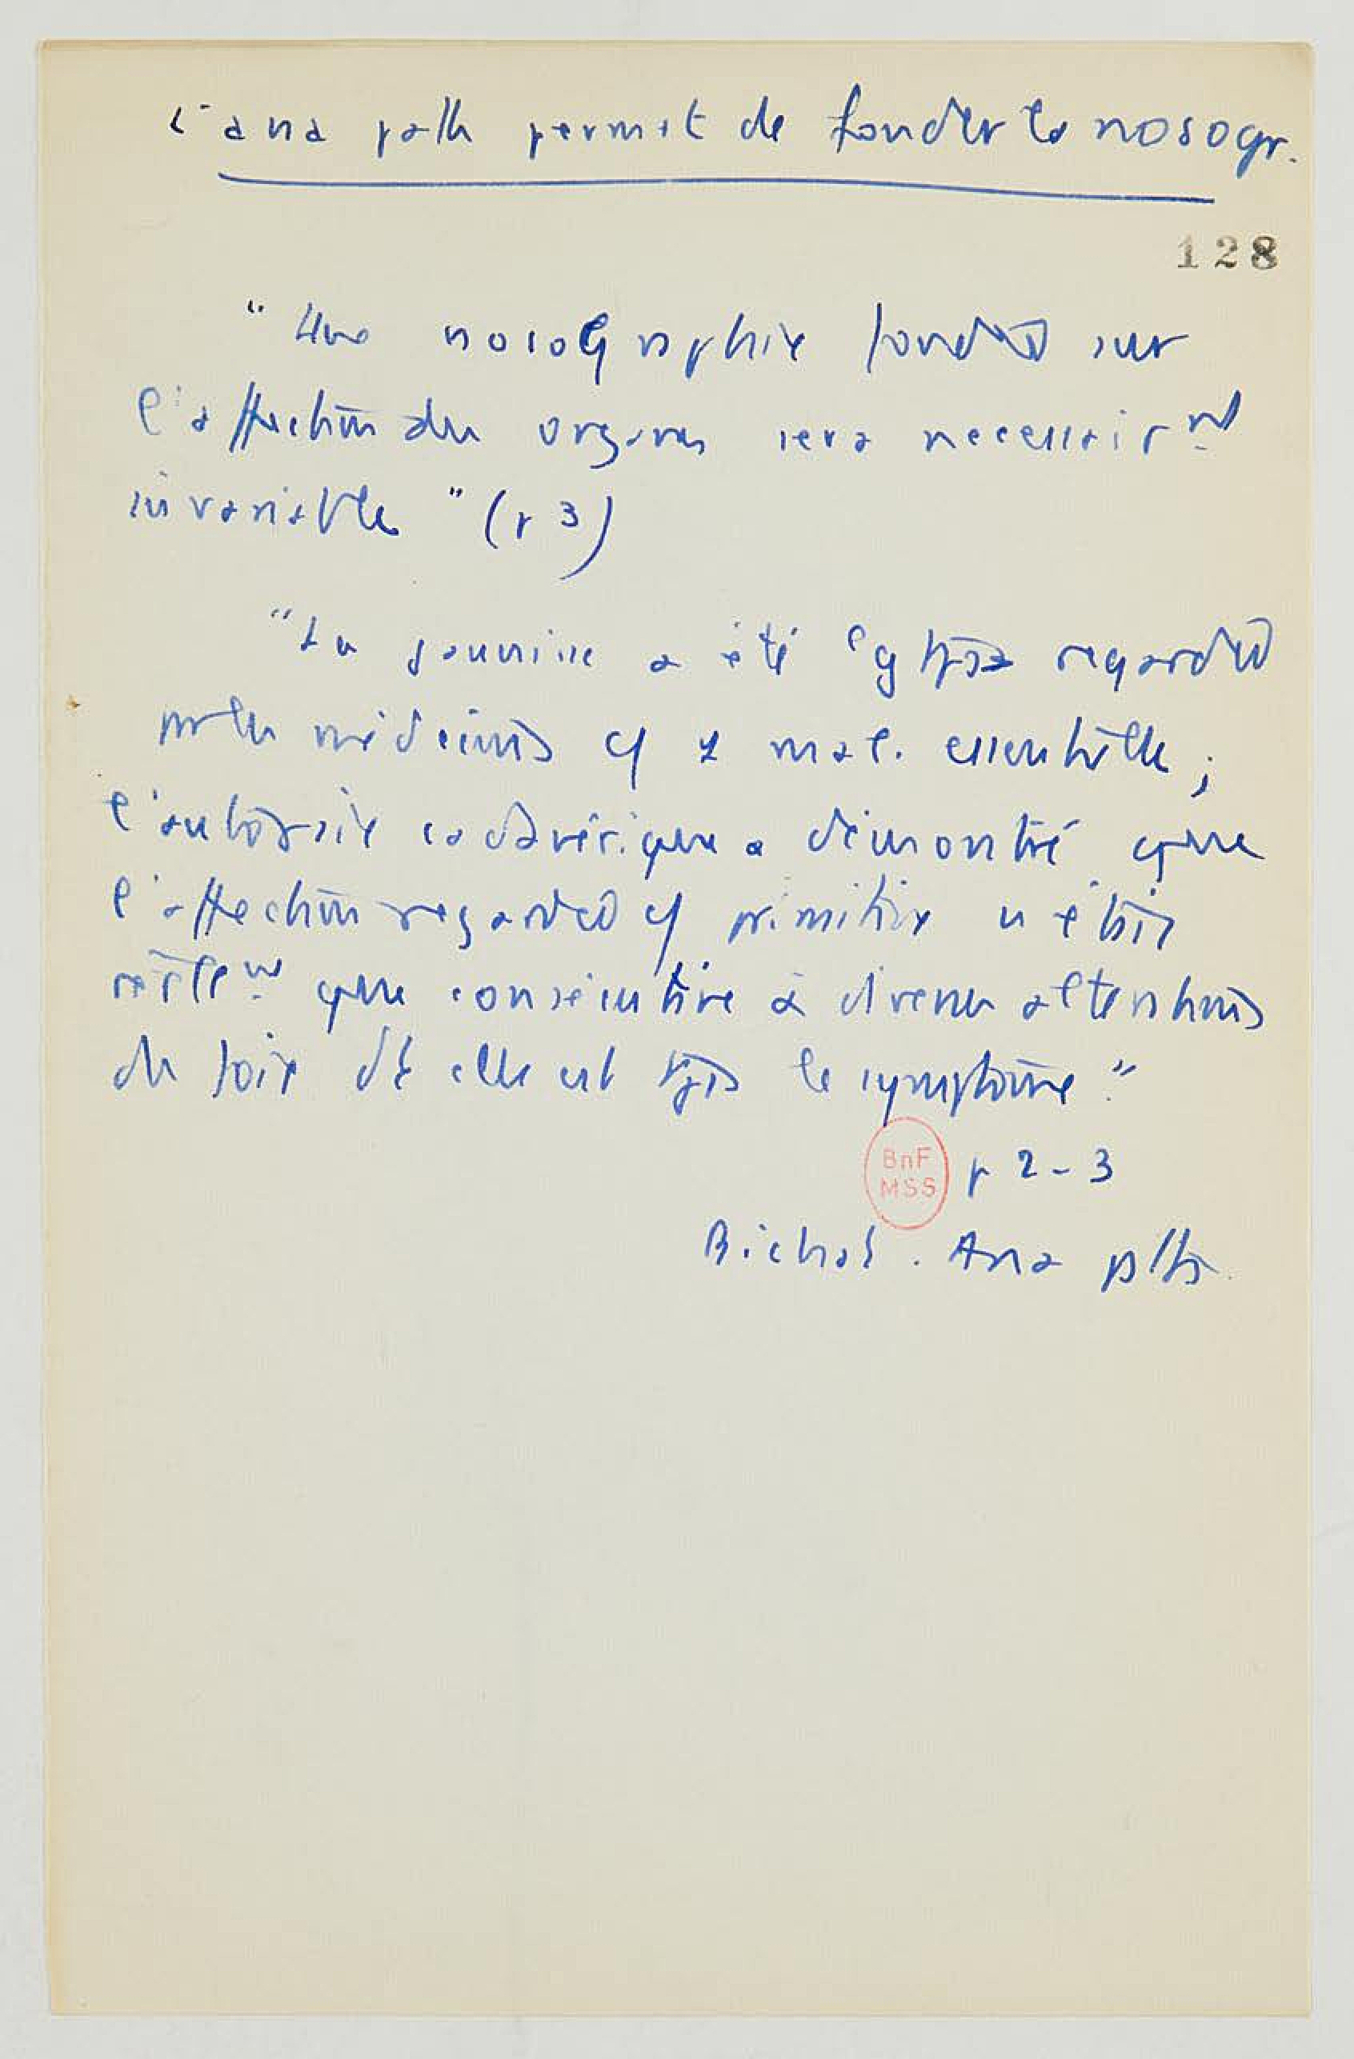 L'ana path permet de fonder la nosogr.
128
"Une nosographie fondée sur
l'affection des organes sera necessairnt
invariable" (p 3)
"La jaunisse a été regardée
par les médecins cf mal. essentielle ;
l'autopsie cadavérique a démontré que
l'affection regardée cf primitive n'était
réellent que consécutive à diverses altérations
du foie dt elle est tjrs le symptôme"
BnF
MSS
p 2-3
Bichat. Ana path.